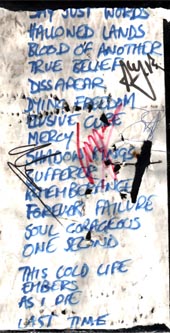 SAY JUST WORDS
HALLOWED LANDS
BLOOD OF ANOTHER
TRUE BELIEF
DISSAPEAR
DYING FREEDOM
ELUSIVE CURE
MERCY
SHADOW KINGS
SUFFERER
REMEMBERANCE
FOREVER FAILURE
SOUL CORAGEOUS
ONE SECOND
THIS COLD LIFE
EMBERS
AS I DIE
LAST TIME